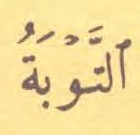 ٱلتَّوۡبَةُ